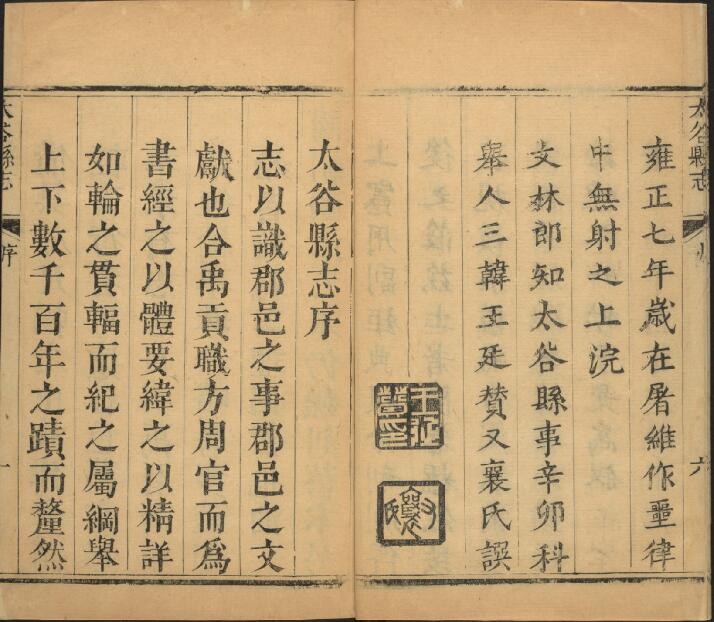 太谷縣志
雍正七年歲在屠維作噩律
中無射之上浣
文林郎知太谷縣事辛卯科
舉人三韓王廷贊又襄氏譔
六
太谷縣志序
志以識郡邑之事郡邑之文
獻也合禹貢職方周官而為
書經之以體要緯之以精詳
如輪之貫輻而紀之屬綱舉
上下數千百年之蹟而釐然
太谷縣志
序
一